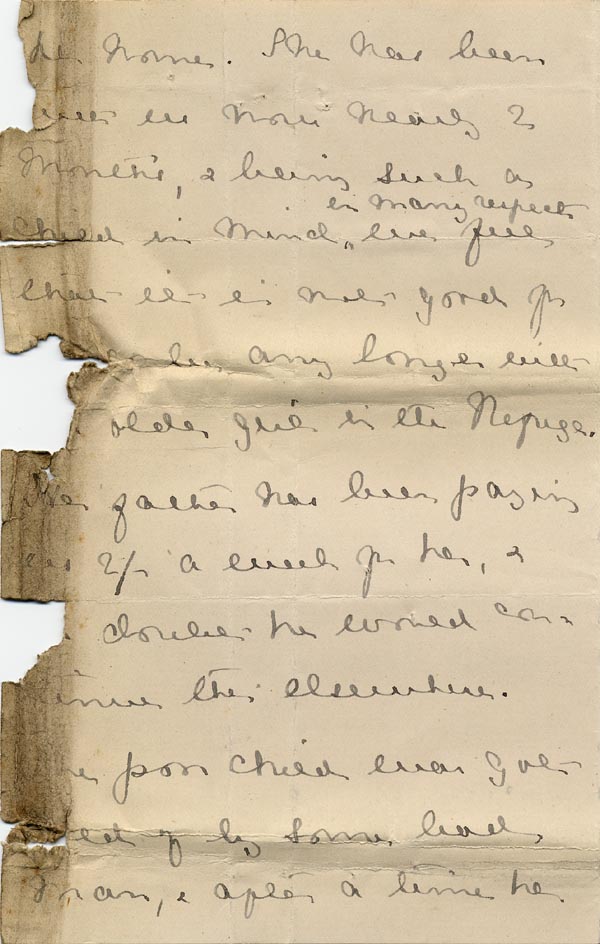 her home. She has been
with us now nearly 2
Months, & being such a
in many respects
Child in Mind, we feel
that it is not good for
to be any longer with
older girls in the Refuge.
Her father has been paying
us 2/- a week for her, &
doubtless he would con-
tinue this elsewhere.
The poor child was got
hold of by some bad
Man, & after a time he